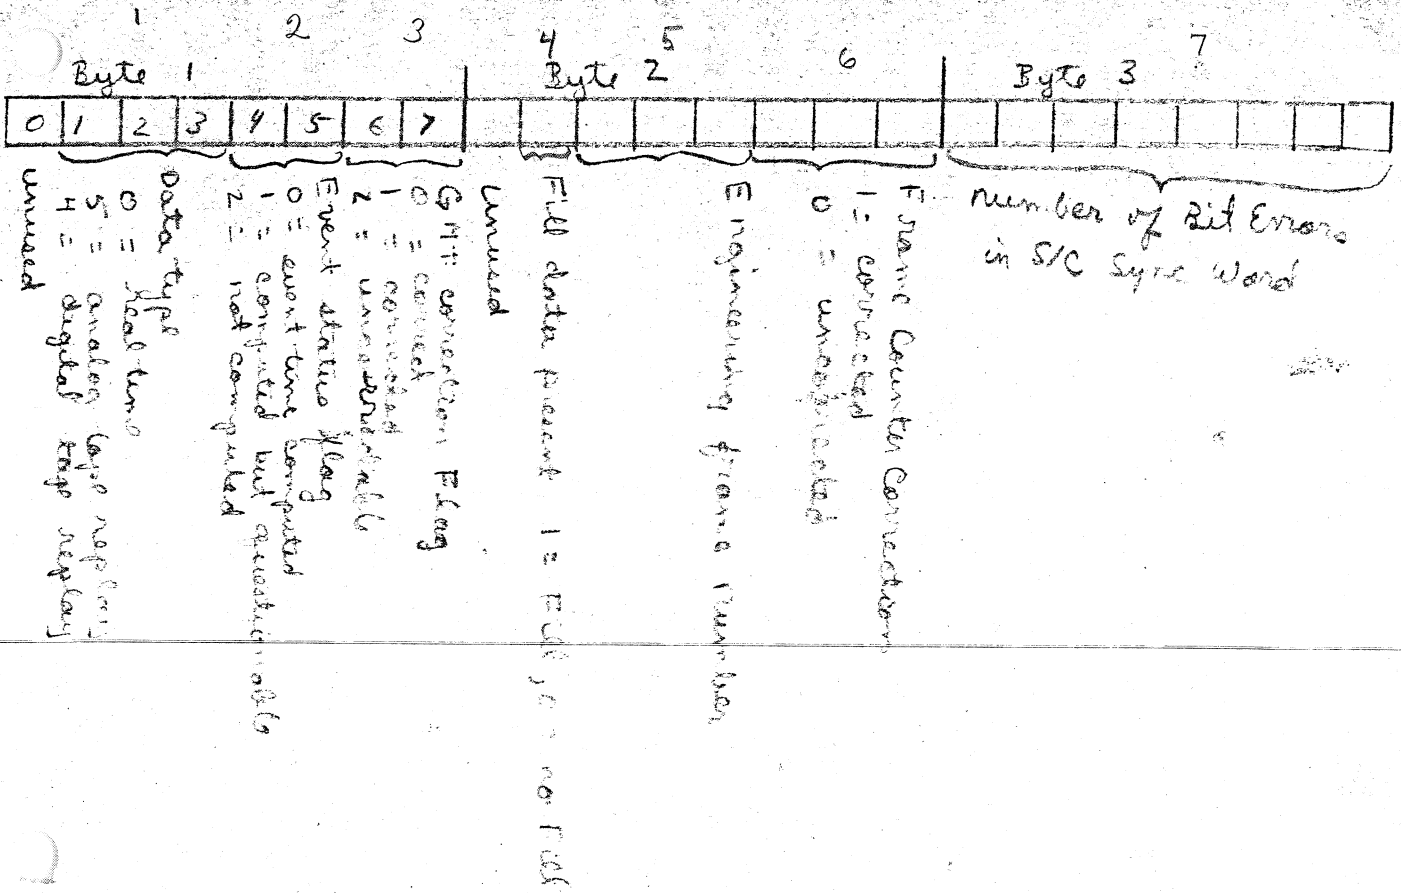 1 2 3 4 5 6 7
Byte 1 Byte 2 Byte 3
0 1 2 3 4 5 6 7
unused
Data type
0 = real time
5 = analog tape replay
4 = digital tape replay
Event status flag
0 = event time computed
1 = computed but questionable
2 = not computed
GMT correction Flag
0 = correct
1 = corrected
2 =
unused
Fill data present 1 = Fill, 0 = no Fill
Engineering frame number
Frame Counter Correction
1 = corrected
0 = uncorrected
Number of Bit Errors
in S/C Sync Word